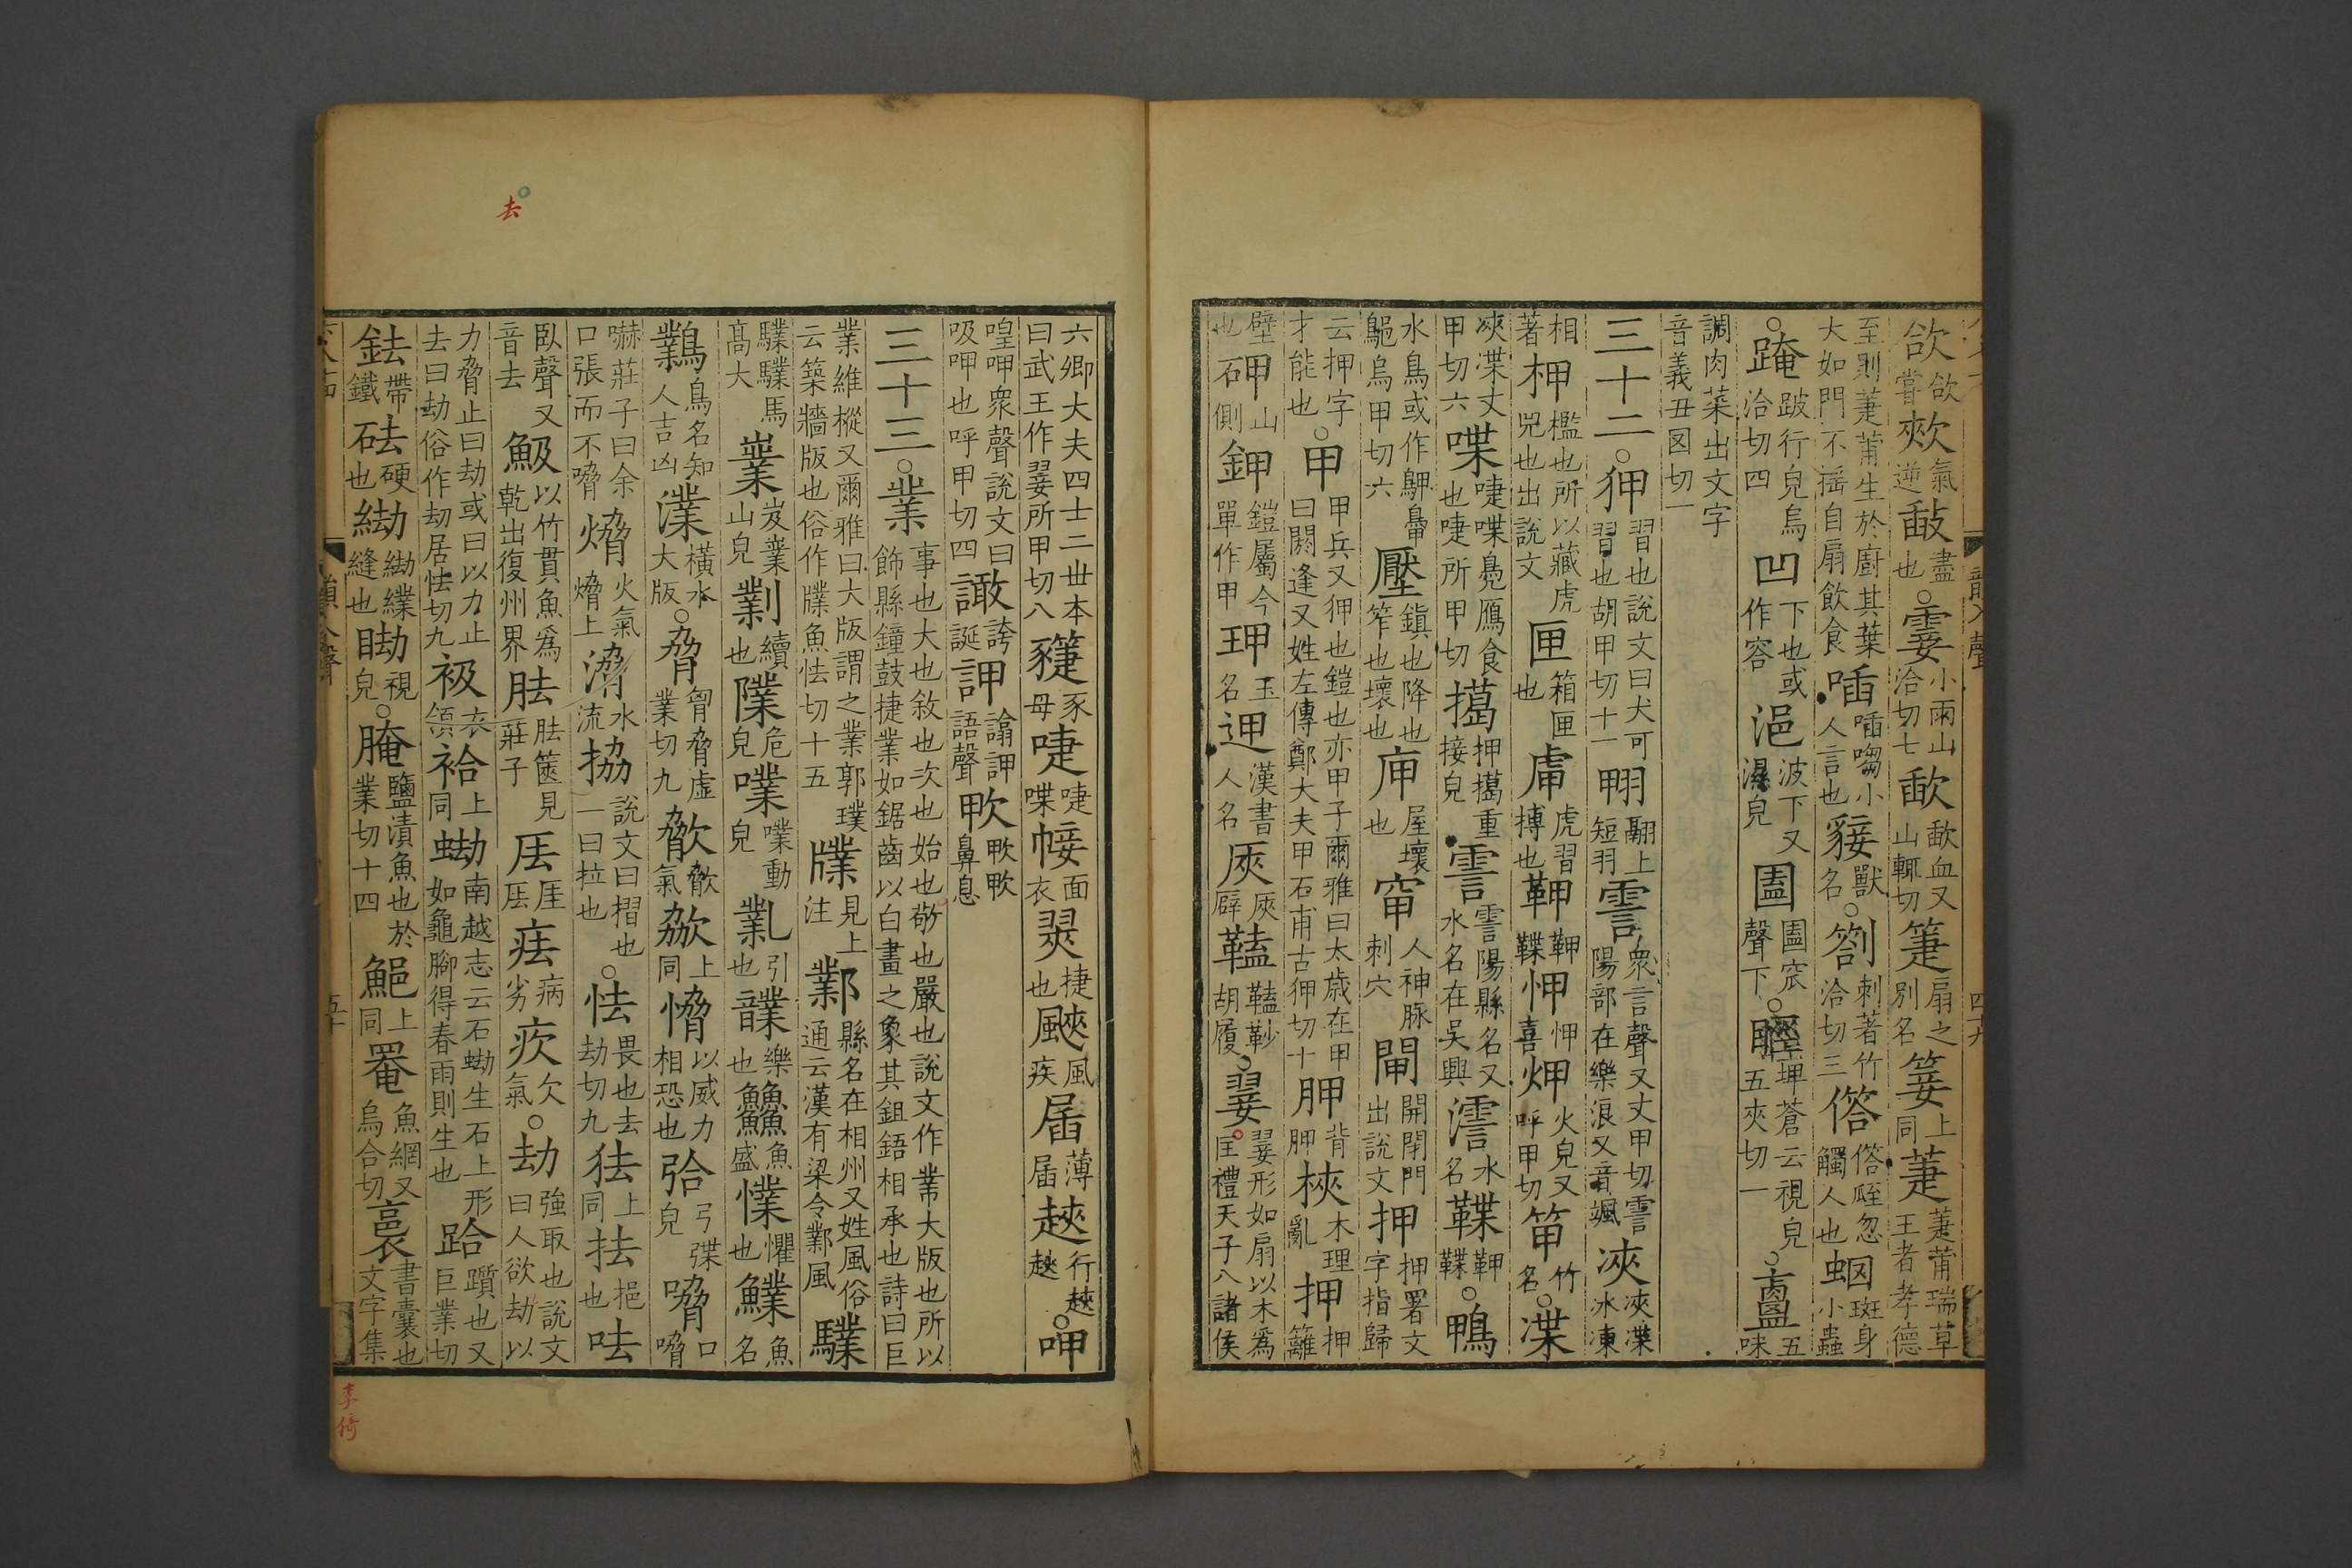 欱欱嘗㰼氣逆㪉盡也○霎小雨山洽切七歃歃血又山輒切箑扇之別名篓上同萐萐莆瑞草王者孝德
至則萐莆生於廚其葉大如門不搖自扇飲食㗙㗙㗙小人言也獸名○劄刺著竹洽切三偺偺㾑忽觸人也蛚斑身小蟲
○踠跛行皃烏洽切四凹下也或作容浥波下又濕皃圔圔窊聲下○䀹埤蒼云視皃五夾切一○五味
調肉菜出文字音義丑図切一
三十二○狎習也說文曰犬可習也胡甲切十一翈翮上短羽霅衆言聲又丈甲切霅陽部在樂浪又音颯浹浹渫冰凍
相著柙檻也所以藏虎兕也出說文匣箱匣也虎習搏也鞞鞞鞢㤉㤉喜炠火皃又呼甲切笚竹名○渫
浹渫丈甲切六喋唼喋鳧鴈食也唼所甲切㩉押㩉重接皃霅霅陽縣名又水名在吳興澐水名鞢鞞鞢○鴨
水鳥或作鴄鼻鶂烏甲切六壓鎮也降也笮也壞也庘屋壞也窂人神脉刺穴閘開閉門出說文押押署文字指歸
云押字才能也○甲甲兵又狎也鎧也亦甲子爾雅曰太歲在甲曰閼逢又姓左傳鄭大夫甲石甫古狎切十胛背胛梜木理亂押押籬
壁也岬山石側鉀鎧屬今單作甲玾玉名迊漢書人名㕅㕅㕅鞈胡履○翣翣形如扇以木爲匡禮天子八諸侯
六卿大夫四士二丗本曰武王作翣所甲切八豕母唼唼喋帹面衣翜捷也䬊風疾届薄届䞣行䞣䞣○呷
喤呷衆聲說文曰吸呷也呼甲切四譀誇誕䛅譮䛅語聲㰺㰺㰺鼻息
三十三○業事也大也敘也次也始也敬也嚴也說文作業大版也所以飾縣鐘鼓捷業如鋸齒以白畫之象其鉏鋙相承也詩曰巨
業維樅又爾雅曰大版謂之業郭璞云築牆版也俗作牒魚怯切十五牒見上注鄴縣名在相州又姓風俗通云漢有梁令鄴風驜
驜驜馬高大嶪岌嶪山皃㔎續也䧨危皃㗼㗼動皃䢢引也䪪樂也䲜魚盛㦪懼也鸈魚名
鸈鳥名知人吉凶澲橫水大版○脅胷脅虛業切九歙歙氣㰰上同愶以威力相恐也㢵弓弽皃嗋口嗋
嚇莊子曰余口張而不嗋熁火氣熁上㴽水流拹說文曰摺也一曰拉也○怯畏也去劫切九㹤上同抾挹也呿
臥聲又音去魥以竹貫魚爲乾出復州界胠胠篋見莊子厒厓厒㾀病劣疺欠氣○劫強取也說文曰人欲劫以
力脅止曰劫或曰以力止去曰劫俗作刧居怯切九衱衣領袷上同蜐南越志云石蜐生石上形如龜腳得春雨則生也跲躓也又巨業切
鉣帶鐵砝硬也䋚䋚緤縫也䀫視皃○腌鹽漬魚也於業切十四䱒上同罨魚網又烏合切裛書囊也文字集
去
李倚